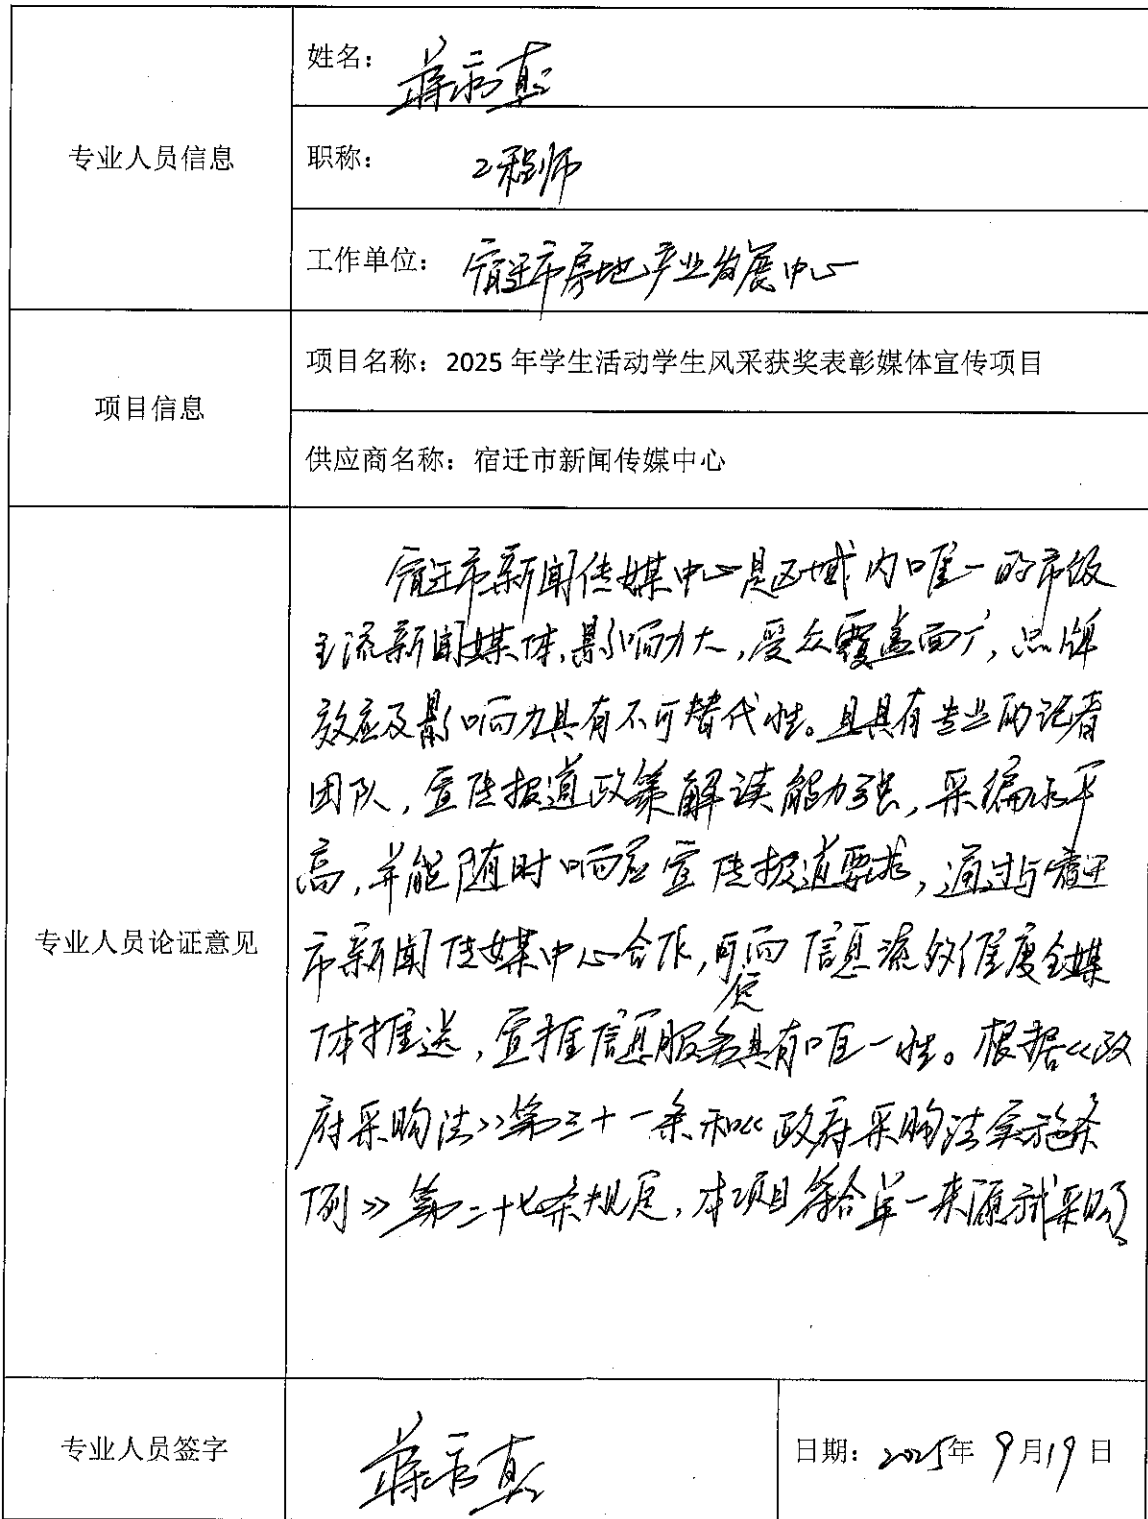 专业人员信息
姓名：蒋
职称：工程师
工作单位：宿迁市房地产业发展中心
项目信息
项目名称：2025年学生活动学生风采获奖表彰媒体宣传项目
供应商名称：宿迁市新闻传媒中心
专业人员论证意见
宿迁市新闻传媒中心是区域内唯一的市级
主流新闻媒体,影响力大,受众覆盖面广,品牌
效应及影响力具有不可替代性。且具有专业的记者
团队,宣传报道政策解读能力强,采编水平
高,并能随时响应宣传报道要求,通过与宿迁
市新闻传媒中心合作,可信息
体推送,宣推信息服务具有唯一性。根据《政
府采购法》第三十一条和《政府采购法实施条
例》第二十七条规定,本项目符合单一来源式采购
专业人员签字
蒋
日期：2025年9月19日